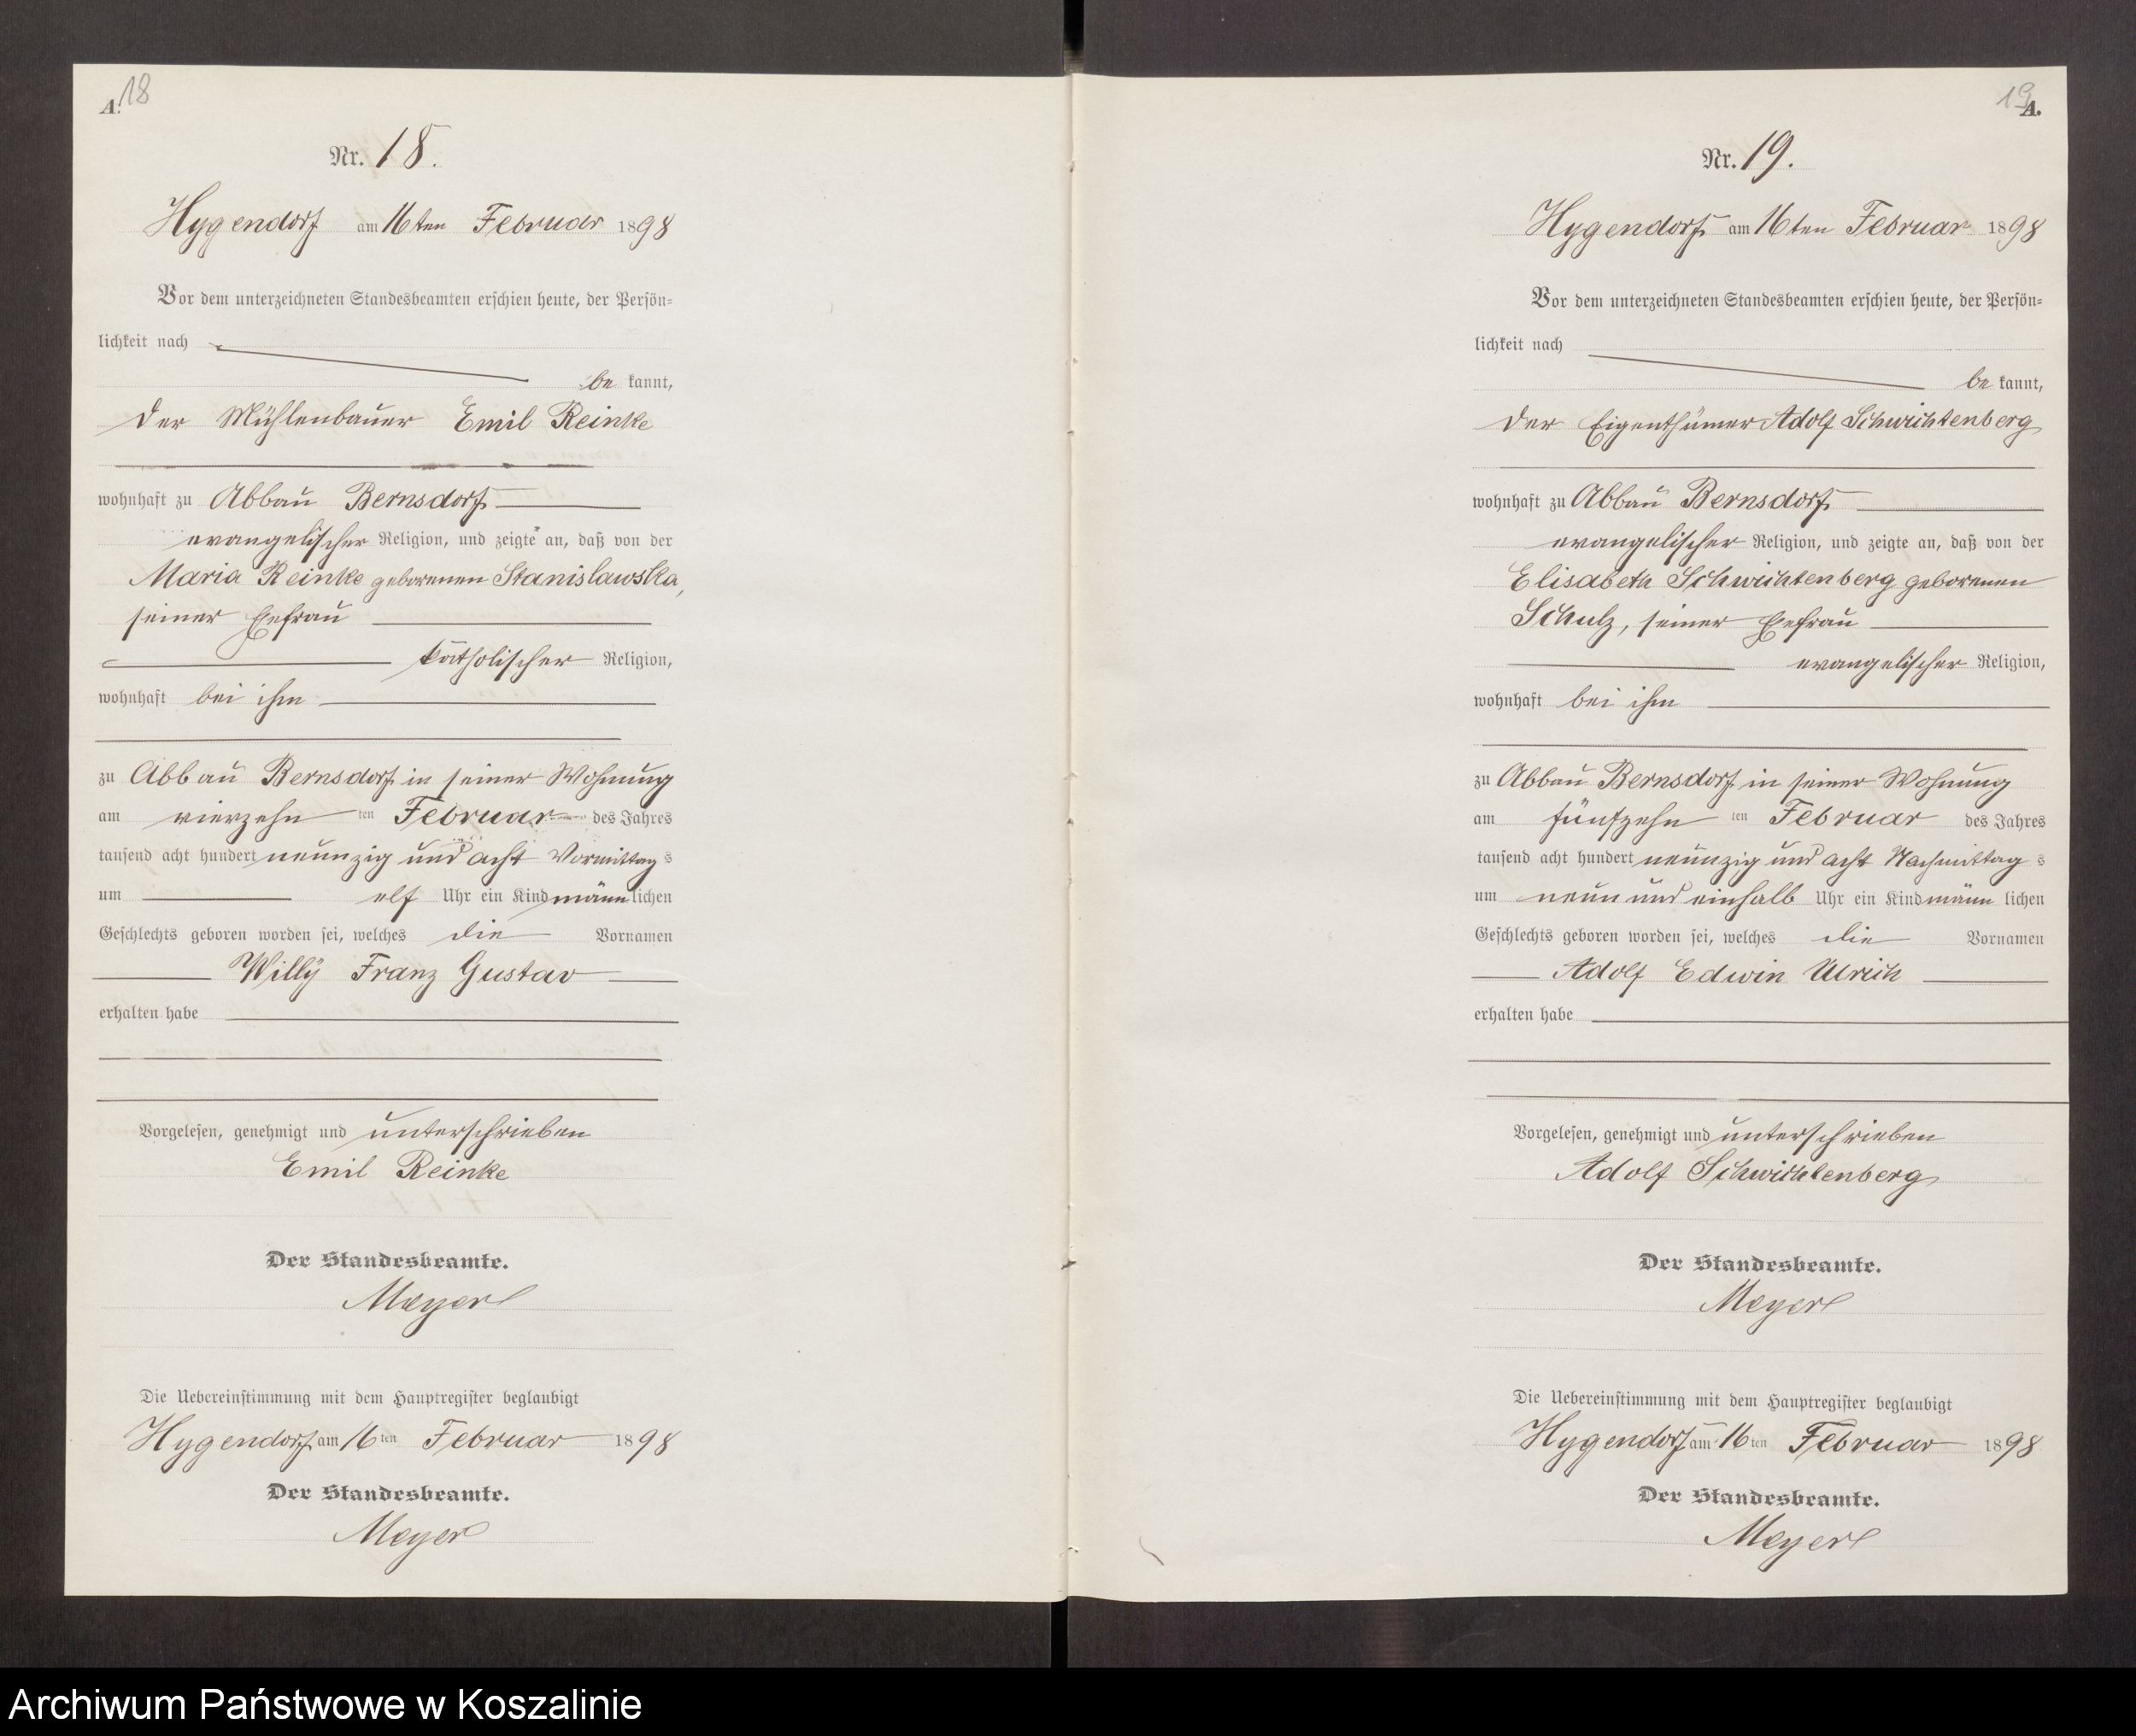 A. 18
Nr. 18.
Hygendorf am 16ten Februar 1898
Vor dem unterzeichneten Standesbeamten erschien heute, der Persön-
lichkeit nach
be kannt,
der Mühlenbauer Emil Reinke
wohnhaft zu Abbau Bernsdorf
evangelischer Religion, und zeigte an, daß von der
Maria Reinke geborenen Stanislawska,
seiner Ehefrau
katholischer Religion,
wohnhaft bei ihm
zu Abbau Bernsdorf in seiner Wohnung
am vierzehn ten Februar des Jahres
tausend acht hundert neunzig und acht Vormittag s
um elf Uhr ein Kind männlichen
Geschlechts geboren worden sei, welches die Vornamen
Willÿ Franz Gustav
erhalten habe
Vorgelesen, genehmigt und unterschrieben
Emil Reinke
Der Standesbeamte.
Meyer
Die Uebereinstimmung mit dem Hauptregister beglaubigt
Hygendorf am 16 ten Februar 1898
Der Standesbeamte.
Meyer
19 A.
Nr. 19.
Hygendorf am 16ten Februar 1898
Vor dem unterzeichneten Standesbeamten erschien heute, der Persön-
lichkeit nach
be kannt,
der Eigenthümer Adolf Schwichtenberg
wohnhaft zu Abbau Bernsdorf
evangelischer Religion, und zeigte an, daß von der
Elisabeth Schwichtenberg geborenen
Schulz, seiner Ehefrau
evangelischer Religion,
wohnhaft bei ihm
zu Abbau Bernsdorf in seiner Wohnung
am fünfzehn ten Februar des Jahres
tausend acht hundert neunzig und acht Nachmittag s
um neun und einhalb Uhr ein Kind männ lichen
Geschlechts geboren worden sei, welches die Vornamen
Adolf Edwin Ulrich
erhalten habe
Vorgelesen, genehmigt und unterschrieben
Adolf Schwichtenberg
Der Standesbeamte.
Meyer
Die Uebereinstimmung mit dem Hauptregister beglaubigt
Hygendorf am 16 ten Februar 1898
Der Standesbeamte.
Meyer
Archiwum Państwowe w Koszalinie